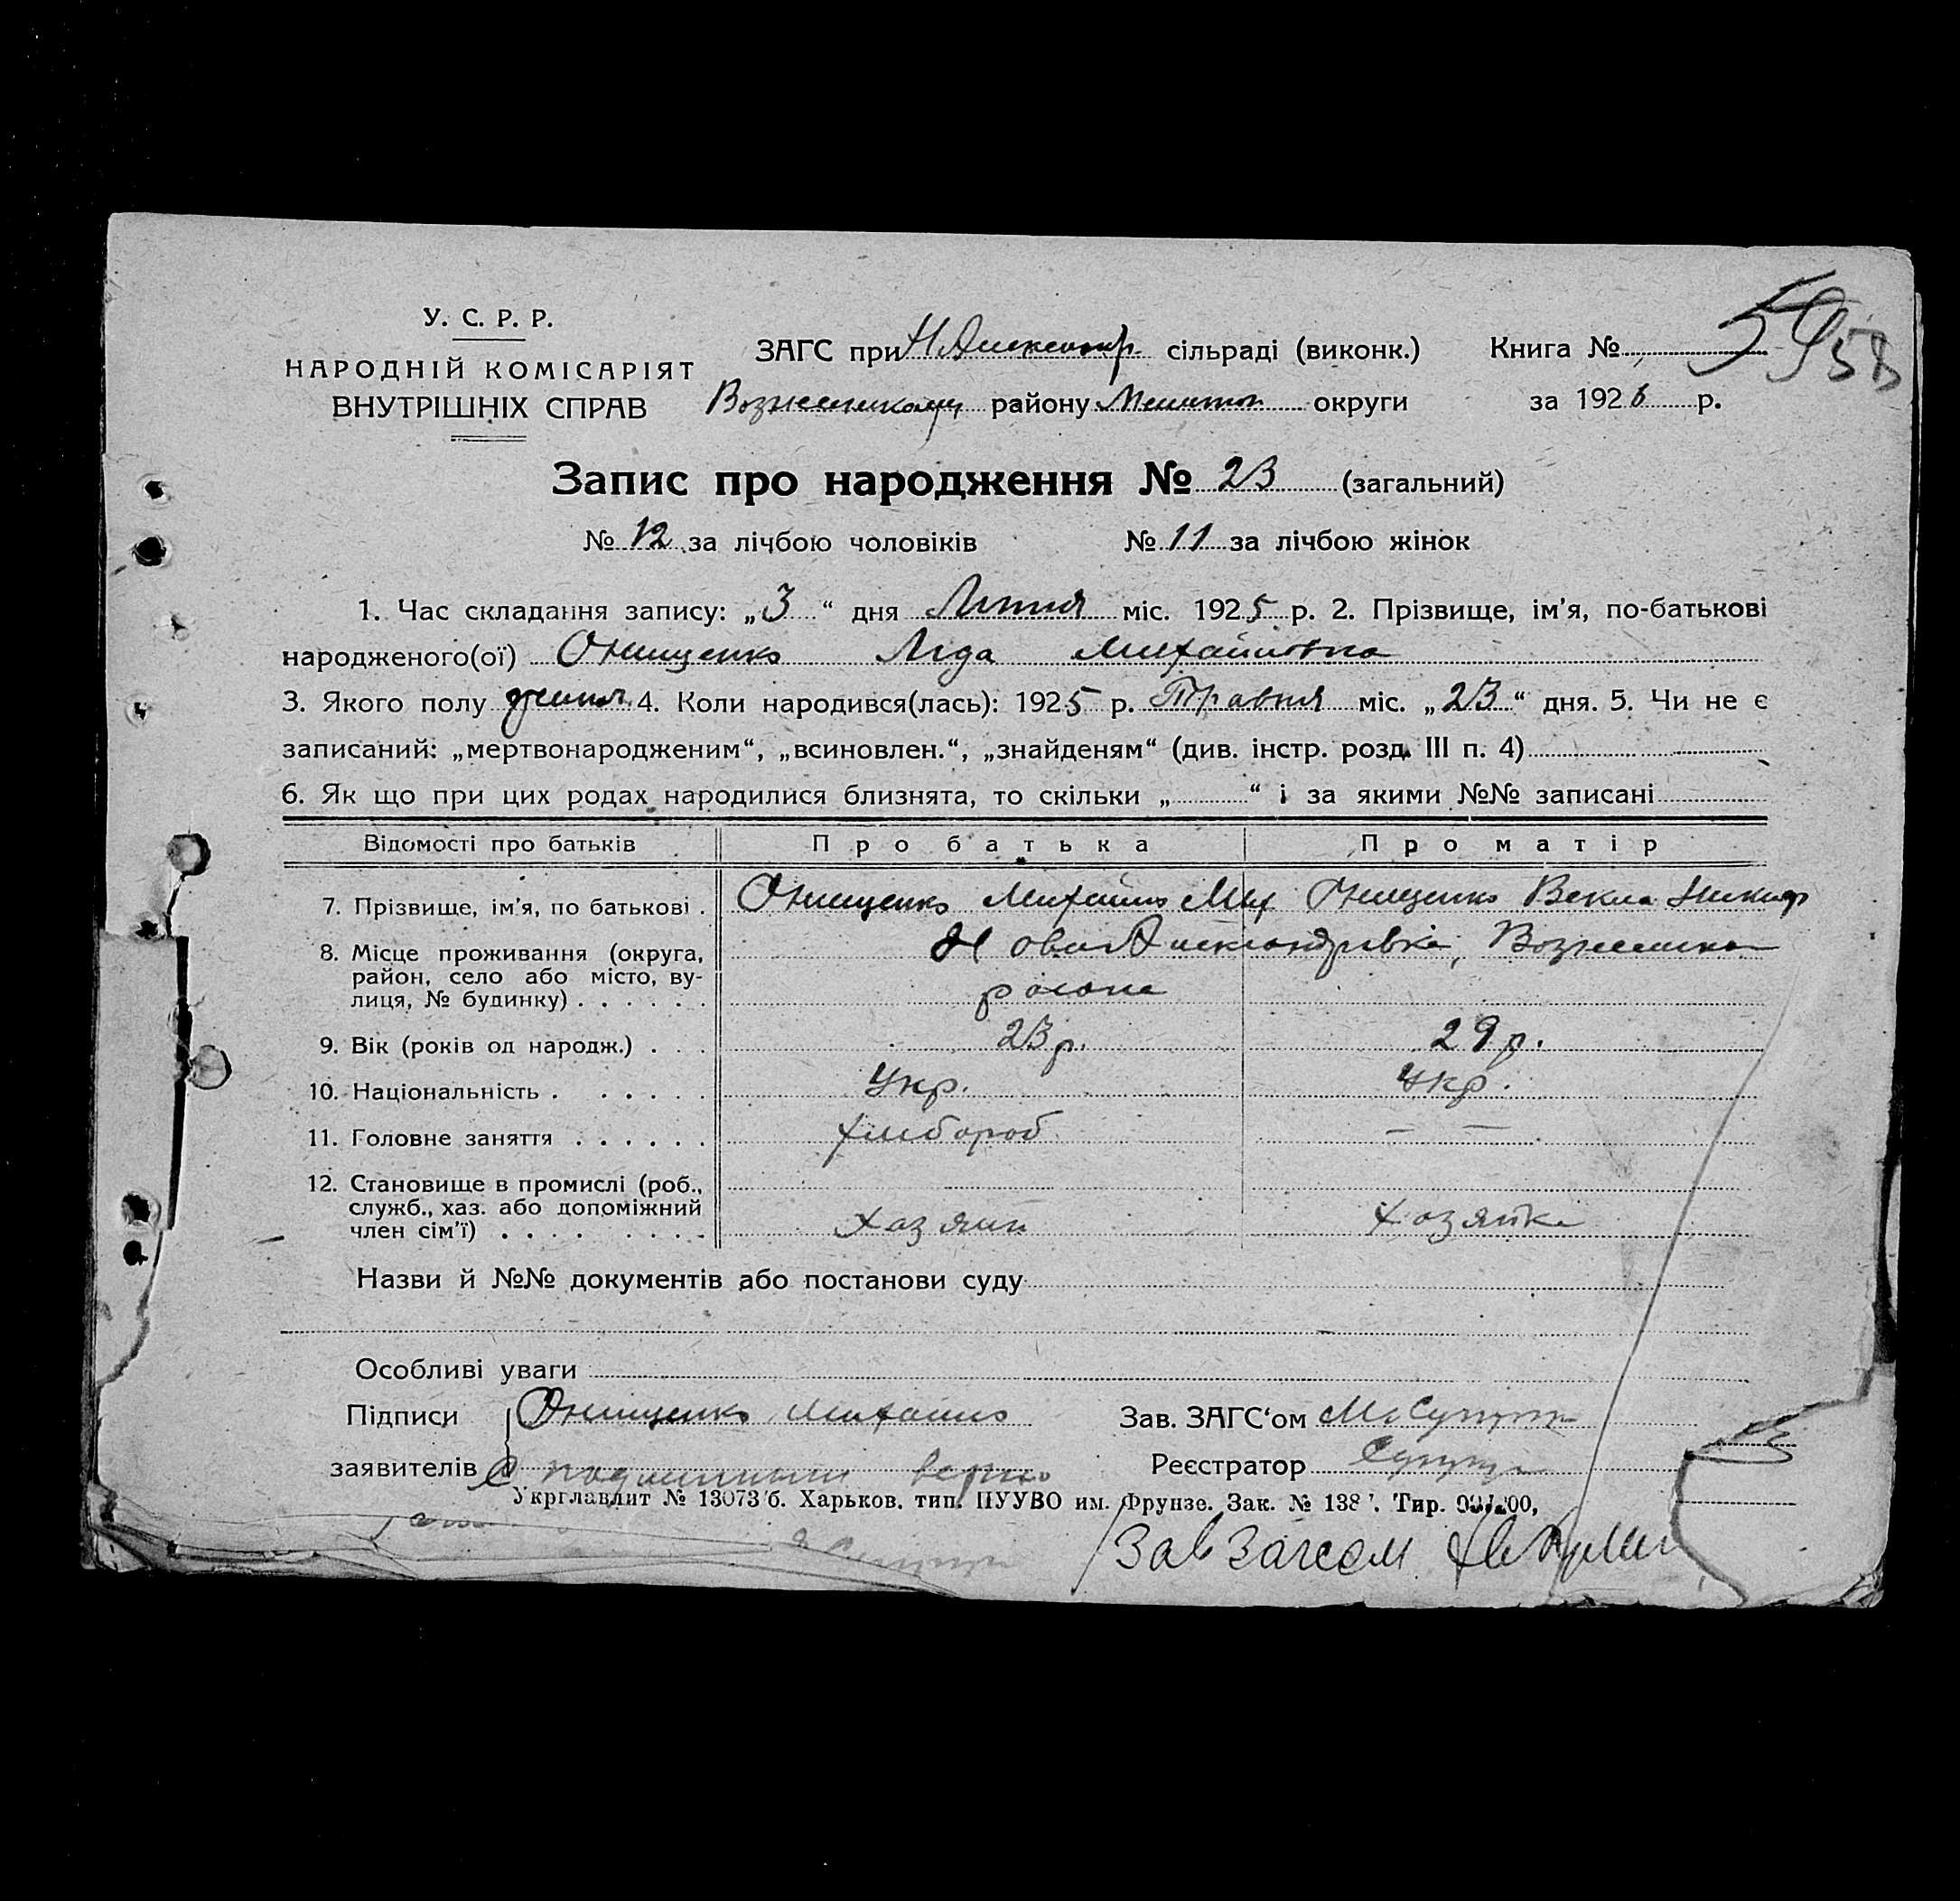 У. С. Р. Р.
НАРОДНІЙ КОМІСАРІЯТ
ВНУТРІШНІХ СПРАВ
ЗАГС при Н Александр. сільраді (виконк.)
району Мелитоп округи
Книга №
за 1926 р.
Запис про народження № 23 (загальний)
№ 12 за лічбою чоловіків № 11 за лічбою жінок
1. Час складання запису: „3“ дня Липня міс. 1925 р. 2. Прізвище, ім'я, по-батькові
народженого(ої) Онищенко Ліда Михайловна
3. Якого полу 4. Коли народився(лась): 1925 р. Травня міс. „23“ дня. 5. Чи не є
записаний: „мертвонародженим“, „всиновлен.“, „знайденям“ (див. інстр. розд. III п. 4)
6. Як що при цих родах народилися близнята, то скільки „ “ і за якими №№ записані
Відомості про батьків Про батька Про матір
7. Прізвище, ім'я, по батькові . Онищенко Михайло Мих Онищенко Векла Никиф
8. Місце проживання (округа, Нова Александривка,
район, село або місто, ву- района
лиця, № будинку) . . . . . .
9. Вік (років од народж.) . . . 23 р. 29 р.
10. Національність . . . . . . Укр. Укр.
11. Головне заняття . . . . . . хлибороб — —
12. Становище в промислі (роб.,
служб., хаз. або допоміжний
член сім'ї) . . . . . . . . хазяин хозяйка
Назви й №№ документів або постанови суду
Особливі уваги
Підписи Онищенко Михайло Зав. ЗАГС‘ом
заявителів С подлинным верно Реєстратор
Укрглавлит № 13073 б. Харьков. тип. ПУУВО им. Фрунзе. Зак. № 138 Тир.
Зав Загсом